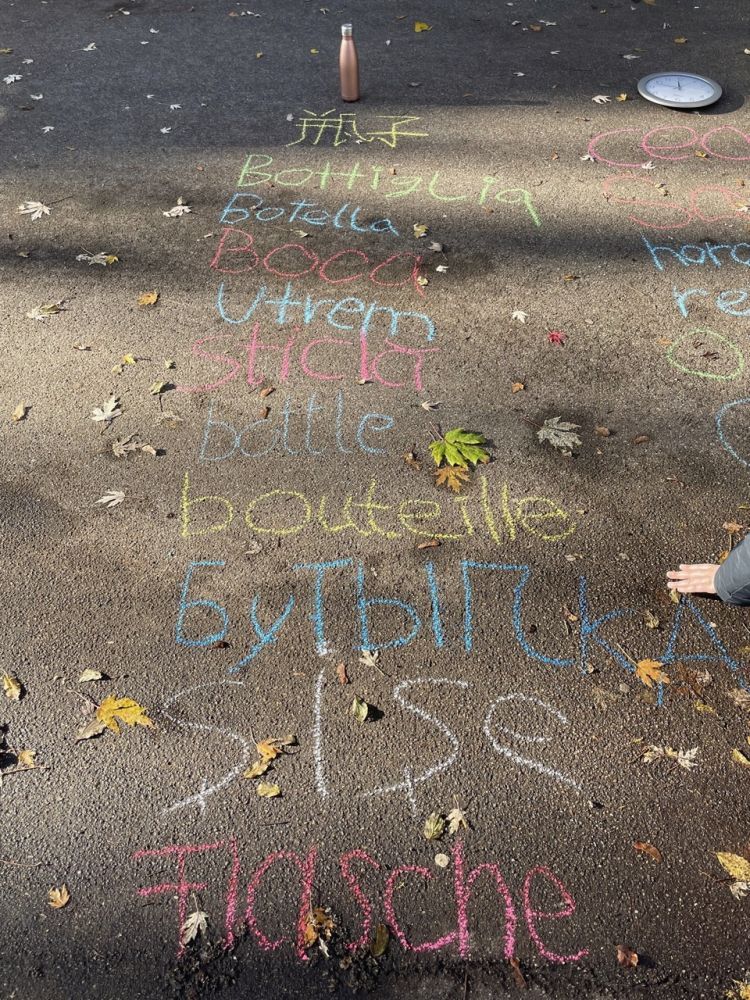 瓶子
BottigLia
Botella
Boca
Utrem
sticla
bottle
bouteille
Бутылка
şışe
Flasche